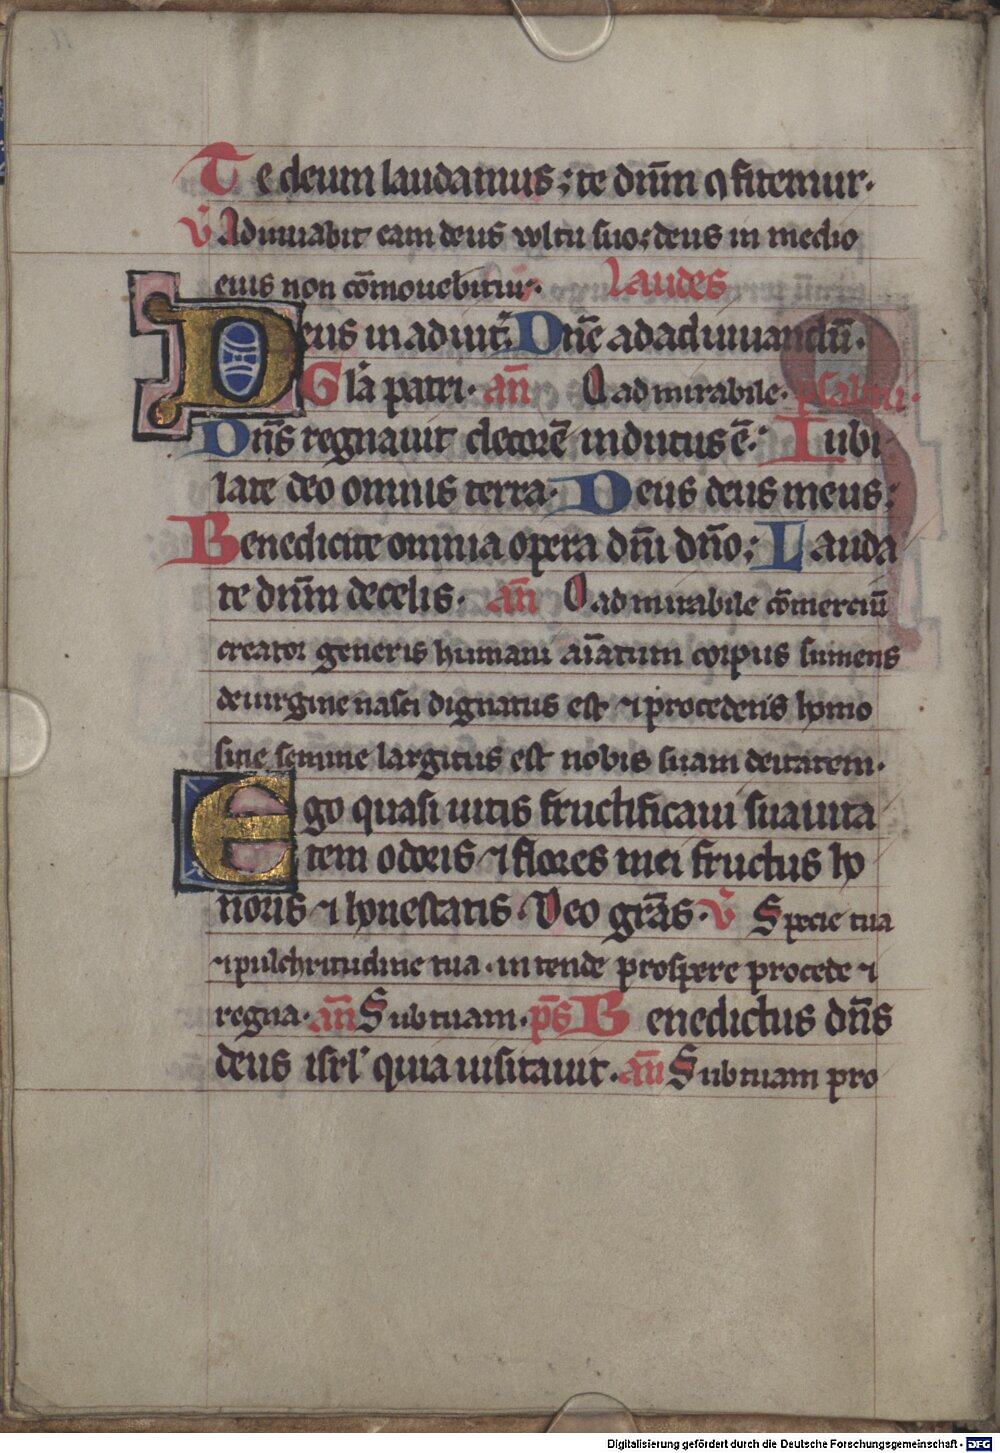 Te deum laudamus; te dnm ꝯfitemur.
v̄ Adiuuabit eam deus vultu suo; deus in medio
eius non cōmouebitur. Laudes
Deus in adiut. Dne ad adiuuandū.
Gla patri. an̄ O admirabile. psalmi.
Dns regnauit decorē indutus ē. Iubi
late deo omnis terra. Deus deus meus;
Benedicite omnia opera dni dno; Lauda
te dnm de celis. an̄ O admirabile cōmerciū
creator generis humani aīatum corpus sumens
de uirgine nasci dignatus est ⁊ procedens homo
sine semine largitus est nobis suam deitatem.
Ego quasi uitis fructificaui suauita
tem odoris ⁊ flores mei fructus ho
noris ⁊ honestatis. Deo gras. v̄ Specie tua
⁊ pulchritudine tua. intende prospere procede ⁊
regna. an̄ Sub tuam. ps Benedictus dns
deus isrl' quia uisitauit. an̄ Sub tuam pro
Digitalisierung gefördert durch die Deutsche Forschungsgemeinschaft - DFG